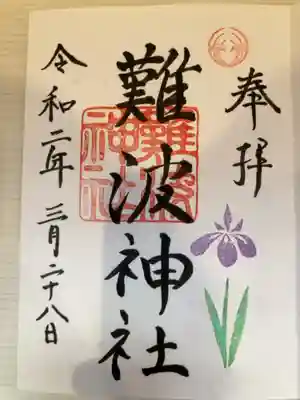 奉拝
難波神社
令和二年三月二十八日
難波
神社